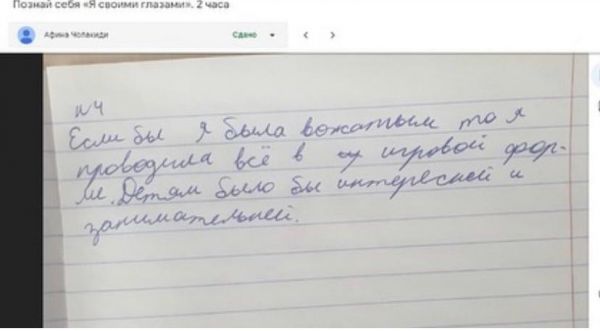 Познай себя «Я своими глазами». 2 часа
Афина Чолакиди
Сдано
№4
Если бы я была вожатым то я
проводила всё в игровой фор-
ме. Детям было бы интересней и
занимательней.